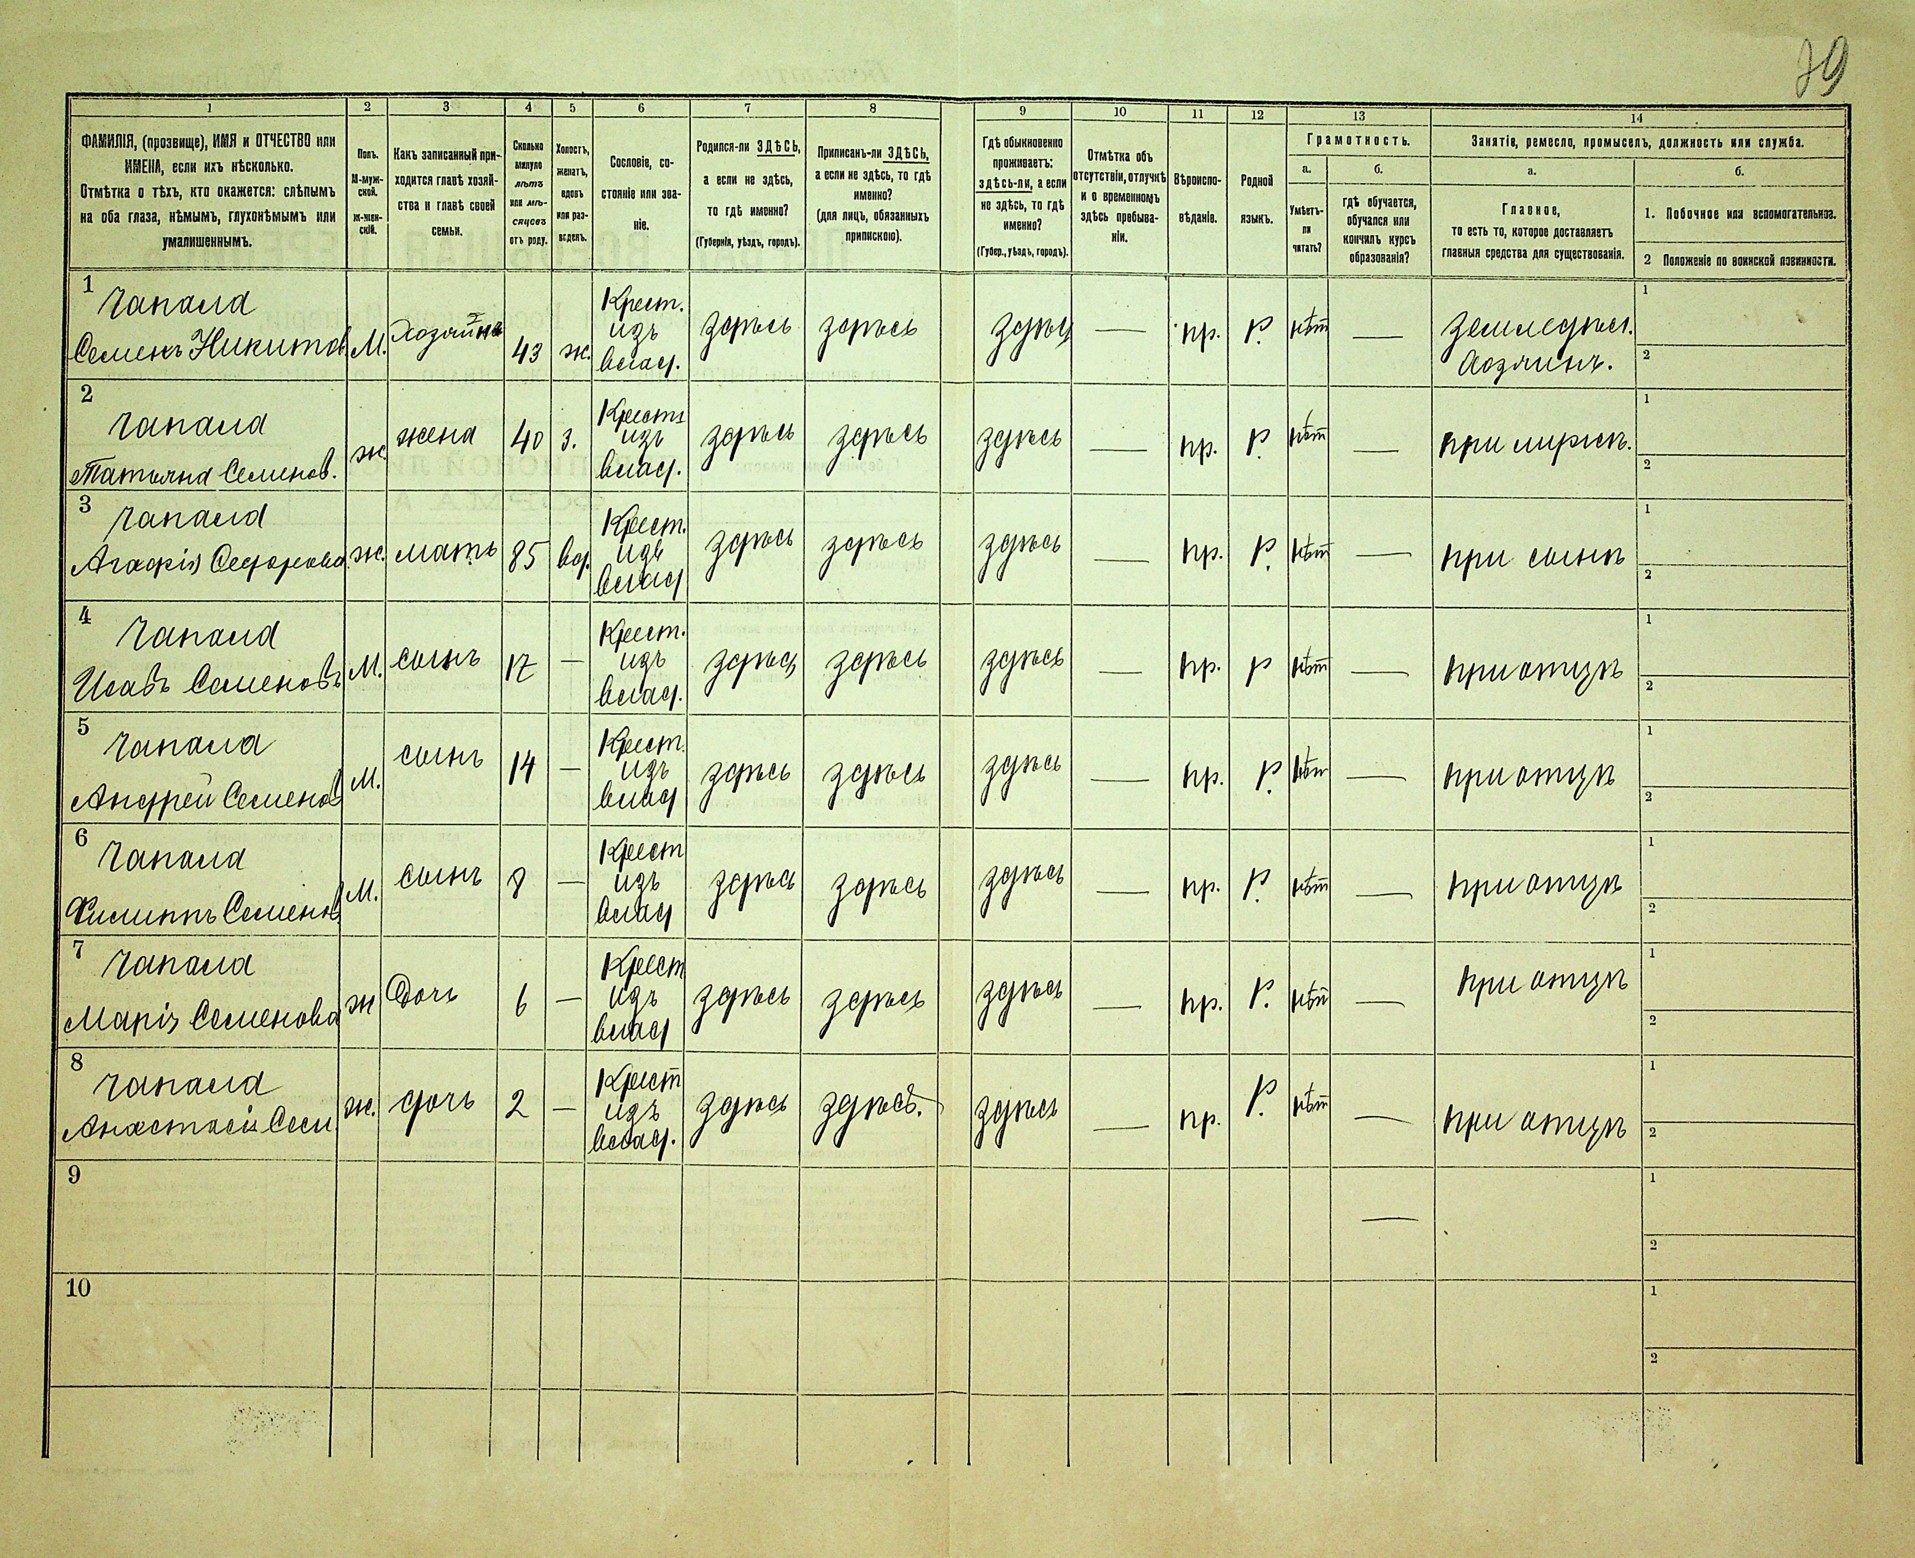 79
1 2 3 4 5 6 7 8 9 10 11 12 13 14
ФАМИЛІЯ, (прозвище), ИМЯ и ОТЧЕСТВО или
ИМЕНА, если ихъ нѣсколько.
Отмѣтка о тѣхъ, кто окажется: слѣпымъ
на оба глаза, нѣмымъ, глухонѣмымъ или
умалишеннымъ.
Полъ.
М-муж-
ской.
Ж-жен-
скій.
Какъ записанный при-
ходится главѣ хозяй-
ства и главѣ своей
семьи.
Сколько
минуло
лѣтъ
или мѣ-
сяцевъ
отъ роду.
Холостъ,
женатъ,
вдовъ
или раз-
веденъ.
Сословіе, со-
стояніе или зва-
ніе.
Родился-ли ЗДѢСЬ,
а если не здѣсь,
то гдѣ именно?
(Губернія, уѣздъ, городъ).
Приписанъ-ли ЗДѢСЬ,
а если не здѣсь, то гдѣ
именно?
(для лицъ, обязанныхъ
припискою).
Гдѣ обыкновенно
проживаетъ:
здѣсь-ли, а если
не здѣсь, то гдѣ
именно?
(Губер., уѣздъ, городъ).
Отмѣтка объ
отсутствіи, отлучкѣ
и о временномъ
здѣсь пребыва-
ніи.
Вѣроиспо-
вѣданіе.
Родной
языкъ.
Грамотность.
а.
Умѣетъ-
ли
читать?
б.
гдѣ обучается,
обучался или
кончилъ курсъ
образованія?
Занятіе, ремесло, промыселъ, должность или служба.
а.
Главное,
то есть то, которое доставляетъ
главныя средства для существованія.
б.
1. Побочное или вспомогательное.
2 Положеніе по воинской повинности.
1
Чапала
Семенъ Никитов
М.
Хозяинъ
43
ж.
Крест.
изъ
влад.
здѣсь
здѣсь
здѣсь
—
пр.
Р.
нѣт
—
Земледѣл.
Хозяинъ.
1
2
2
Чапала
Татьяна Семенов.
ж.
жена
40
з.
Крестя
изъ
влад.
здѣсь
здѣсь
здѣсь
—
пр.
Р.
нѣт
—
при мужѣ.
1
2
3
Чапала
Агафія Сидорова
ж.
мать
85
вд.
Крест.
изъ
влад
здѣсь
здѣсь
здѣсь
—
пр.
Р.
нѣт
—
при сынѣ
1
2
4
Чапала
Исавъ Семеновъ
М.
сынъ
17
—
Крест.
изъ
влад.
здѣсь
здѣсь
здѣсь
—
пр.
Р
нѣт
—
при отцѣ
1
2
5
Чапала
Андрей Семенов
М.
сынъ
14
—
Крест.
изъ
влад
здѣсь
здѣсь
здѣсь
—
пр.
Р.
нѣт
—
при отцѣ
1
2
6
Чапала
Филиппъ Семенов
М.
сынъ
8
—
Крест
изъ
влад
здѣсь
здѣсь
здѣсь
—
пр.
Р.
нѣт
—
при отцѣ
1
2
7
Чапала
Марія Семенова
ж
Дочь
6
—
Крест
изъ
влад
здѣсь
здѣсь
здѣсь
—
пр.
Р.
нѣт
—
при отцѣ
1
2
8
Чапала
Анастасія Сем
ж.
дочь
2
—
Крест
изъ
влад.
здѣсь
здѣсь.
здѣсь
—
пр.
Р.
нѣт
—
при отцѣ
1
2
9
—
1
2
10
1
2